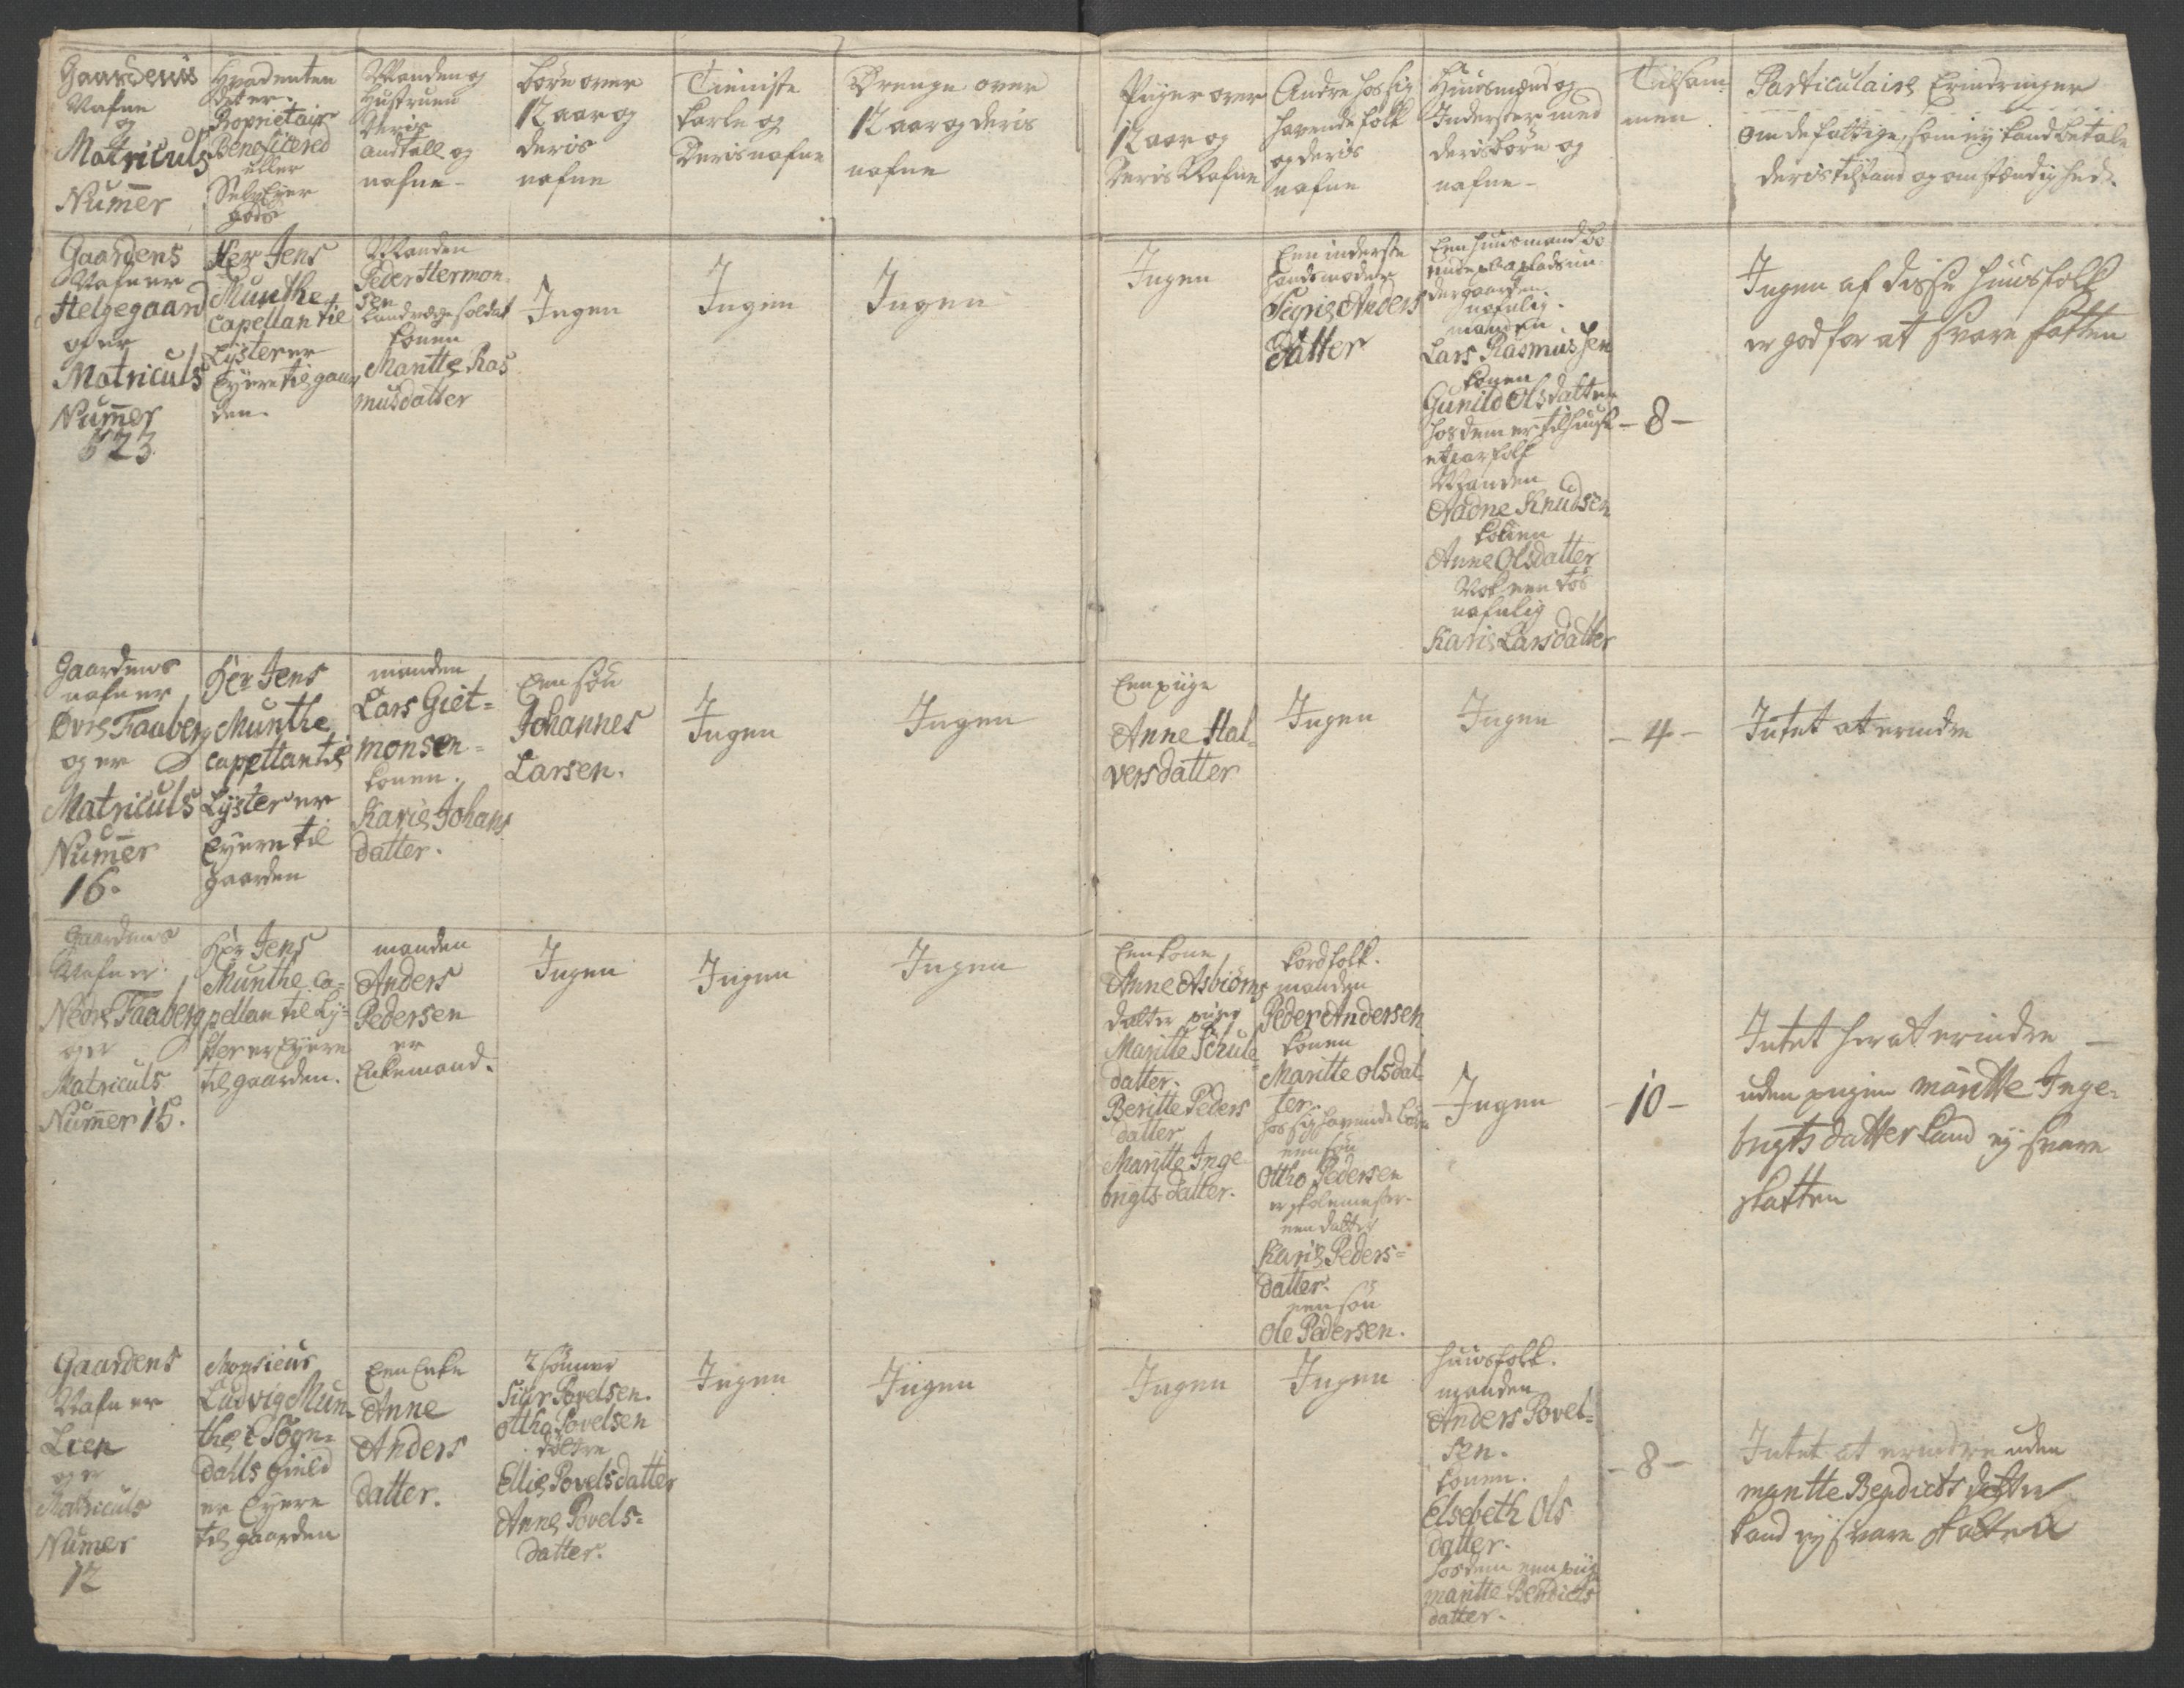 Gaardens
Nafne
og
Matriculs
Numer
Hvadenten
det er
Proprietair
Beneficered
eller
SelvEyer
gods
Manden og
Hustruen
deris
antall og
nafne-
børn over
12 aar og
deris
nafne
Tieniste
Karle og
Deris nafne
Drenge over
12 aar og deris
nafne
Piiger over
12 aar og
deris Nafne
Andre hos sig
havende folk
og deris
nafne
Huusmænd og
Inderster med
deris børn og
nafne-
Tilsam-
men
Particulaire Erindringer
om de fattige, som ey kand betale
deris tilstand og omstændighed.
Gaardens
Nafn er
Helgegaard
og er
Matriculs
Numer
23
Her Jens
Munthe
Capellan til
Lyster er
Eyere til gaar
den.
Manden
Peder Hermon
sen
Landværge soldat
konen
Maritte Ras
musdatter
Ingen
Ingen
Ingen
Ingen
Een inderste
Sigrie Anders
datter
Een huusmand bo
ende paa plads un
der gaarden
nafnlig.
manden.
Lars Rasmussen
konen
Gunild Olsdatter
hos dem er til huuse
et par folk
Manden
Aadne Knudsen
konen
Anne Olsdatter
Nok een tøs
nafnlig
Karie Larsdatter
- 8 -
Ingen af disse huusfolk
er god for at svare skatten
Gaardens
nafn er
Øvre Faaberg
og er
Matriculs
Numer
16.
Her Jens
Munthe
Capellan til
Lyster er
Eyere til
gaarden
manden
Lars Giet-
monsen-
konen.
Karie Johans
datter.
Een søn
Johannes
Larsen.
Ingen
Ingen
Een piige
Anne Hal-
versdatter
Ingen
Ingen
- 4 -
Intet at erindre
Gaardens
Nafn er
Nedre Faaberg
og er
Matriculs
Numer 15.
Her Jens
Munthe Ca-
pellan til Ly-
ster er Eyere
til gaarden.
manden
Anders
Pedersen
er
Enkemand.
Ingen
Ingen
Ingen
Een kone
Anne Asbiørns
datter piiger
Maritte Schule
datter.
Beritte Peders
datter
Maritte Inge
brigts datter.
folk.
manden
Peder Andersen
konen
Maritte Olsdat-
ter.
hos sig havende børn
een søn
Ottho Pedersen
er skolemester.
een datter
Karie Peders-
datter.
een søn
Ole Pedersen.
Ingen
- 10 -
Intet her at erindre -
uden piigen Maritte Inge-
brigts datter kand ey svare
skatten
Gaardens
Nafn er
Lien
og er
Matriculs
Numer
12
Monsieur
Ludvig Mun-
the i Sogn-
dalls Gield
er Eyere
til gaarden
Een Enke
Anne
Anders
datter.
2 sønner
Siur Povelsen.
Ottho Povelsen
døttre
Ellie Povelsdatter
Anne Povels-
datter.
Ingen
Ingen
Ingen
Ingen
huusfolk.
manden
Anders Povel-
sen.
konen.
Elsebeth Ols
datter.
hos dem een piige
Maritte Bendicts
datter.
- 8 -
Intet at erindre uden
Maritte Bendicts datter
kand ey svare skatten